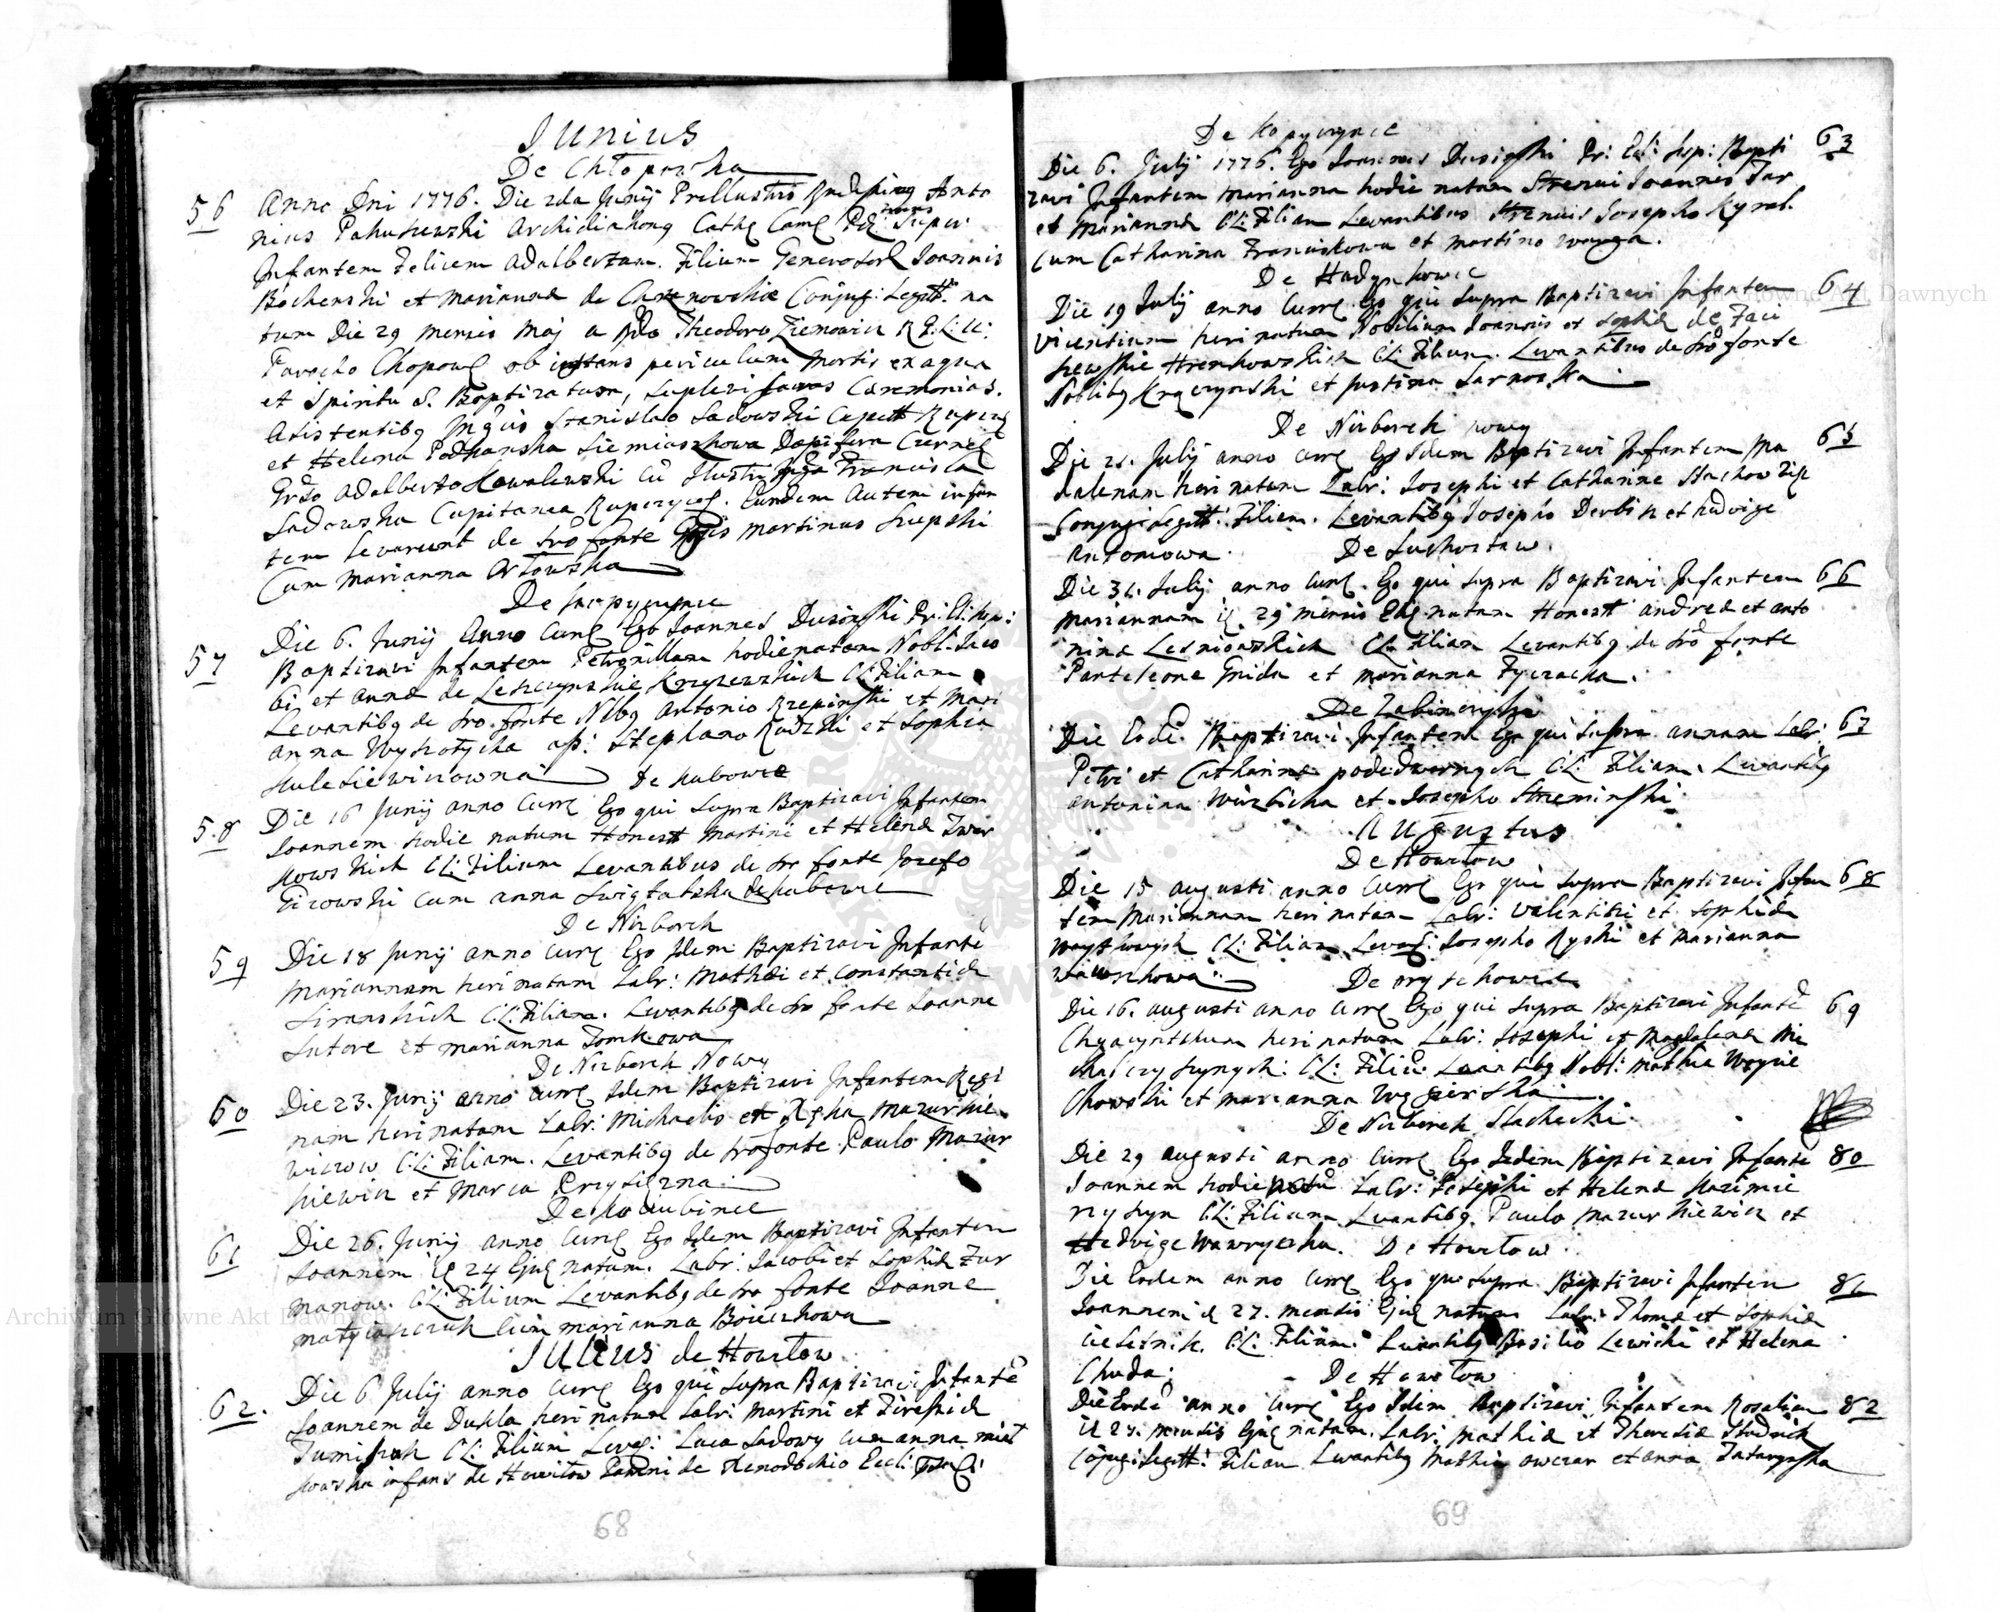 Junius
De Chłoparka
56 Anno Dni 1776. Die 2da Junij Perillustris Rndssimq Anto
nius Pakuszewski Archidiakong Cathq Camq
Infantem Felicem Adalbertum. Filium Generosorq Joannis
Bochenski et Mariannæ de Conjug: Legitt: na
tum Die 29 mensis Maj a Rdo Theodoro Zienowicz R: L: U:
Parocho Chopowq ob instans periculum Mortis ex aqua
et Spiritu S. Baptizatum, Suplevi Sacras Cæremonias.
Asistentibq Stanislao Sadowski Capitt Kupczq
et Helena Podhanska Siemiaszkowa Dapifera Czernięq
Grdso Adalberto Kowalewski cũ Illustri Francisca
Sadowska Capitanea Kupczyceq. Eundem Autem infan
tem levarunt de Sro fonte Martinus Slupski
Cum Marianna Orłowska
De
57 Die 6. Junij Anno Currq Ego Joannes Dusinski Pr: El: Sup:
Baptizavi Infantem Petronillam hodie natam Nobl: Jaco
bi et Annæ de Leszczynskie Krzyzewskich CL: Filiam
Levantibq de Sro fonte Nlbq Antonio Rzepinski et Mari
anna Wysotycka aſs: Stephano Rudzki et Sophia
Kulesiewiczowna De Kubowce
58 Die 16 Junij anno Currq Ego qui Supra Baptizavi Infantem
Joannem hodie natum Honestt Martini et Helenæ Zwir
kowskich CL: Filium Levantibus de Sro fonte Jozefo
Gizowski cum anna Swigtalska de Kubowce
De Nizborch
59 Die 18 Junij anno Currq Ego Idem Baptizavi Infantẽ
Mariannam heri natam Labr: Mathæi et Constantiæ
Siranskich CL: Filiam. Levantibq de Sro fonte Joanne
Sutore et Marianna Tomkowa
De Nizborch Nowy
60 Die 23. Junij anno Currq Idem Baptizavi Infantem Regi
nam heri natam Labr: Michaelis et Mazurkie
wiczow CL: Filiam. Levantibq de Sro fonte Paulo Mazur
kiewicz et Maria Przysiężna
De Kociubince
61 Die 26. Junij anno Currq Ego Idem Baptizavi Infantem
Joannem iq 24 Ejusq natum. Labr: Jacobi et Sophiæ Fur
manow. CL: Filium Levantibq de Sro fonte Joanne
Matyiaszczuk cum Marianna Boiczkowa
Julius de Howiłow
62. Die 6 Julij anno Currq Ego qui Supra Baptizavi Infantẽ
Joannem de Dukla heri natum Labr: Martini et
CL: Filium Levaq: Luca Sadowy cum anna
infans de Howiłow de Xenodochio Eccl:
68
De Kopyczynce
Die 6. Julij 1776. Ego Joannes Dusinski Pr: El: Sup: Bapti 63
zavi Infantem Marianna hodie natam Strenui Joannes Jar
et Mariannæ CL: Filiam Levantibus Strenuis Josepho Kyral.
cum Catharina Franciskowa et Martino Wayga.
De Hadynkowce
Die 19 Julij anno Currq Ego qui Supra Baptizavi Infantem 64
Vicentium heri natum Nobilium Joannis et Sophiæ de Zaci
szewskie Hrenkowskich CL: Filium. Levantibus de Sro fonte
Noblibq Kręczynski et Justina Sarnoska
De Nizborch nowy
Die 21. Julij anno Currq Ego Idem Baptizavi Infantem Ma 65
dalenam heri natam Labr: Josephi et Catharinæ Stachow
Conjugi Legitt: Filiam. Levantibq Josepho Derbisz et hedvige
Antoniowa. De Suchostaw.
Die 31. Julij anno Currq. Ego qui Supra Baptizavi Infantem 66
Mariannam iq 29 mensis Ejq natam Honestt Andreæ et Anto
ninæ Lesniowskich CL: Filiam Levantibq de Sro fonte
Panteleone Gnida et Marianna Tyczacka.
De
Die Eadẽ. Baptizavi Infantem Ego qui Supra annam Labr: 67
Petri et Catharinæ podedwornych CL: Filiam. Levantibq
Antonina Wirzbicka et Josepho Streminski
Augustus
De Howiłow
Die 15 augusti anno Currq Ego qui Supra Baptizavi Infan 68
tem Mariannam heri natam Labr: Valentini et Sophiæ
Woytkowych CL: Filiam Levaq: Josepho Ryski et Marianna
De Oryszkowce
Die 16. augusti anno Currq Ego qui Supra Baptizavi Infantẽ 69
Chyacyntchum heri natum Labr: Josephi et Magdalenæ Mi
chalczyszynych: CL: Filiũ Levantibq Nobl: Mathia Woycie
chowski et Marianna Węgierska
De Nizborch Slachecki.
Die 29 augusti anno Currq Ego Idem Baptizavi Infantẽ 80
Joannem hodie natũ Labr: Josephi et Helenæ Kazimie
rzyszyn CL: Filium Levantibq. Paulo Mazurkiewicz et
Hedvige Wawryczka. De Howiłow.
Die Eadem anno Currq Ego qui Supra Baptizavi Infantem 81
Joannem iq 27. mensis Ejq natum Labr: Thomæ et Sophiæ
CL: Filium. Levantibq Basilio Lewicki et Helena
Chuda. De Howiłow
Die Eadẽ anno Currq Ego Idem Baptizavi Infantem Rosaliam 82
iq 27. mensis Ejq natam. Labr: Mathiæ et Theresiæ Studnick
Cõjugi Legitt: Filiam Levantibq Mathia owczar et anna Tatarynska
69
Archiwum Główne Akt Dawnych
Archiwum Główne Akt Dawnych